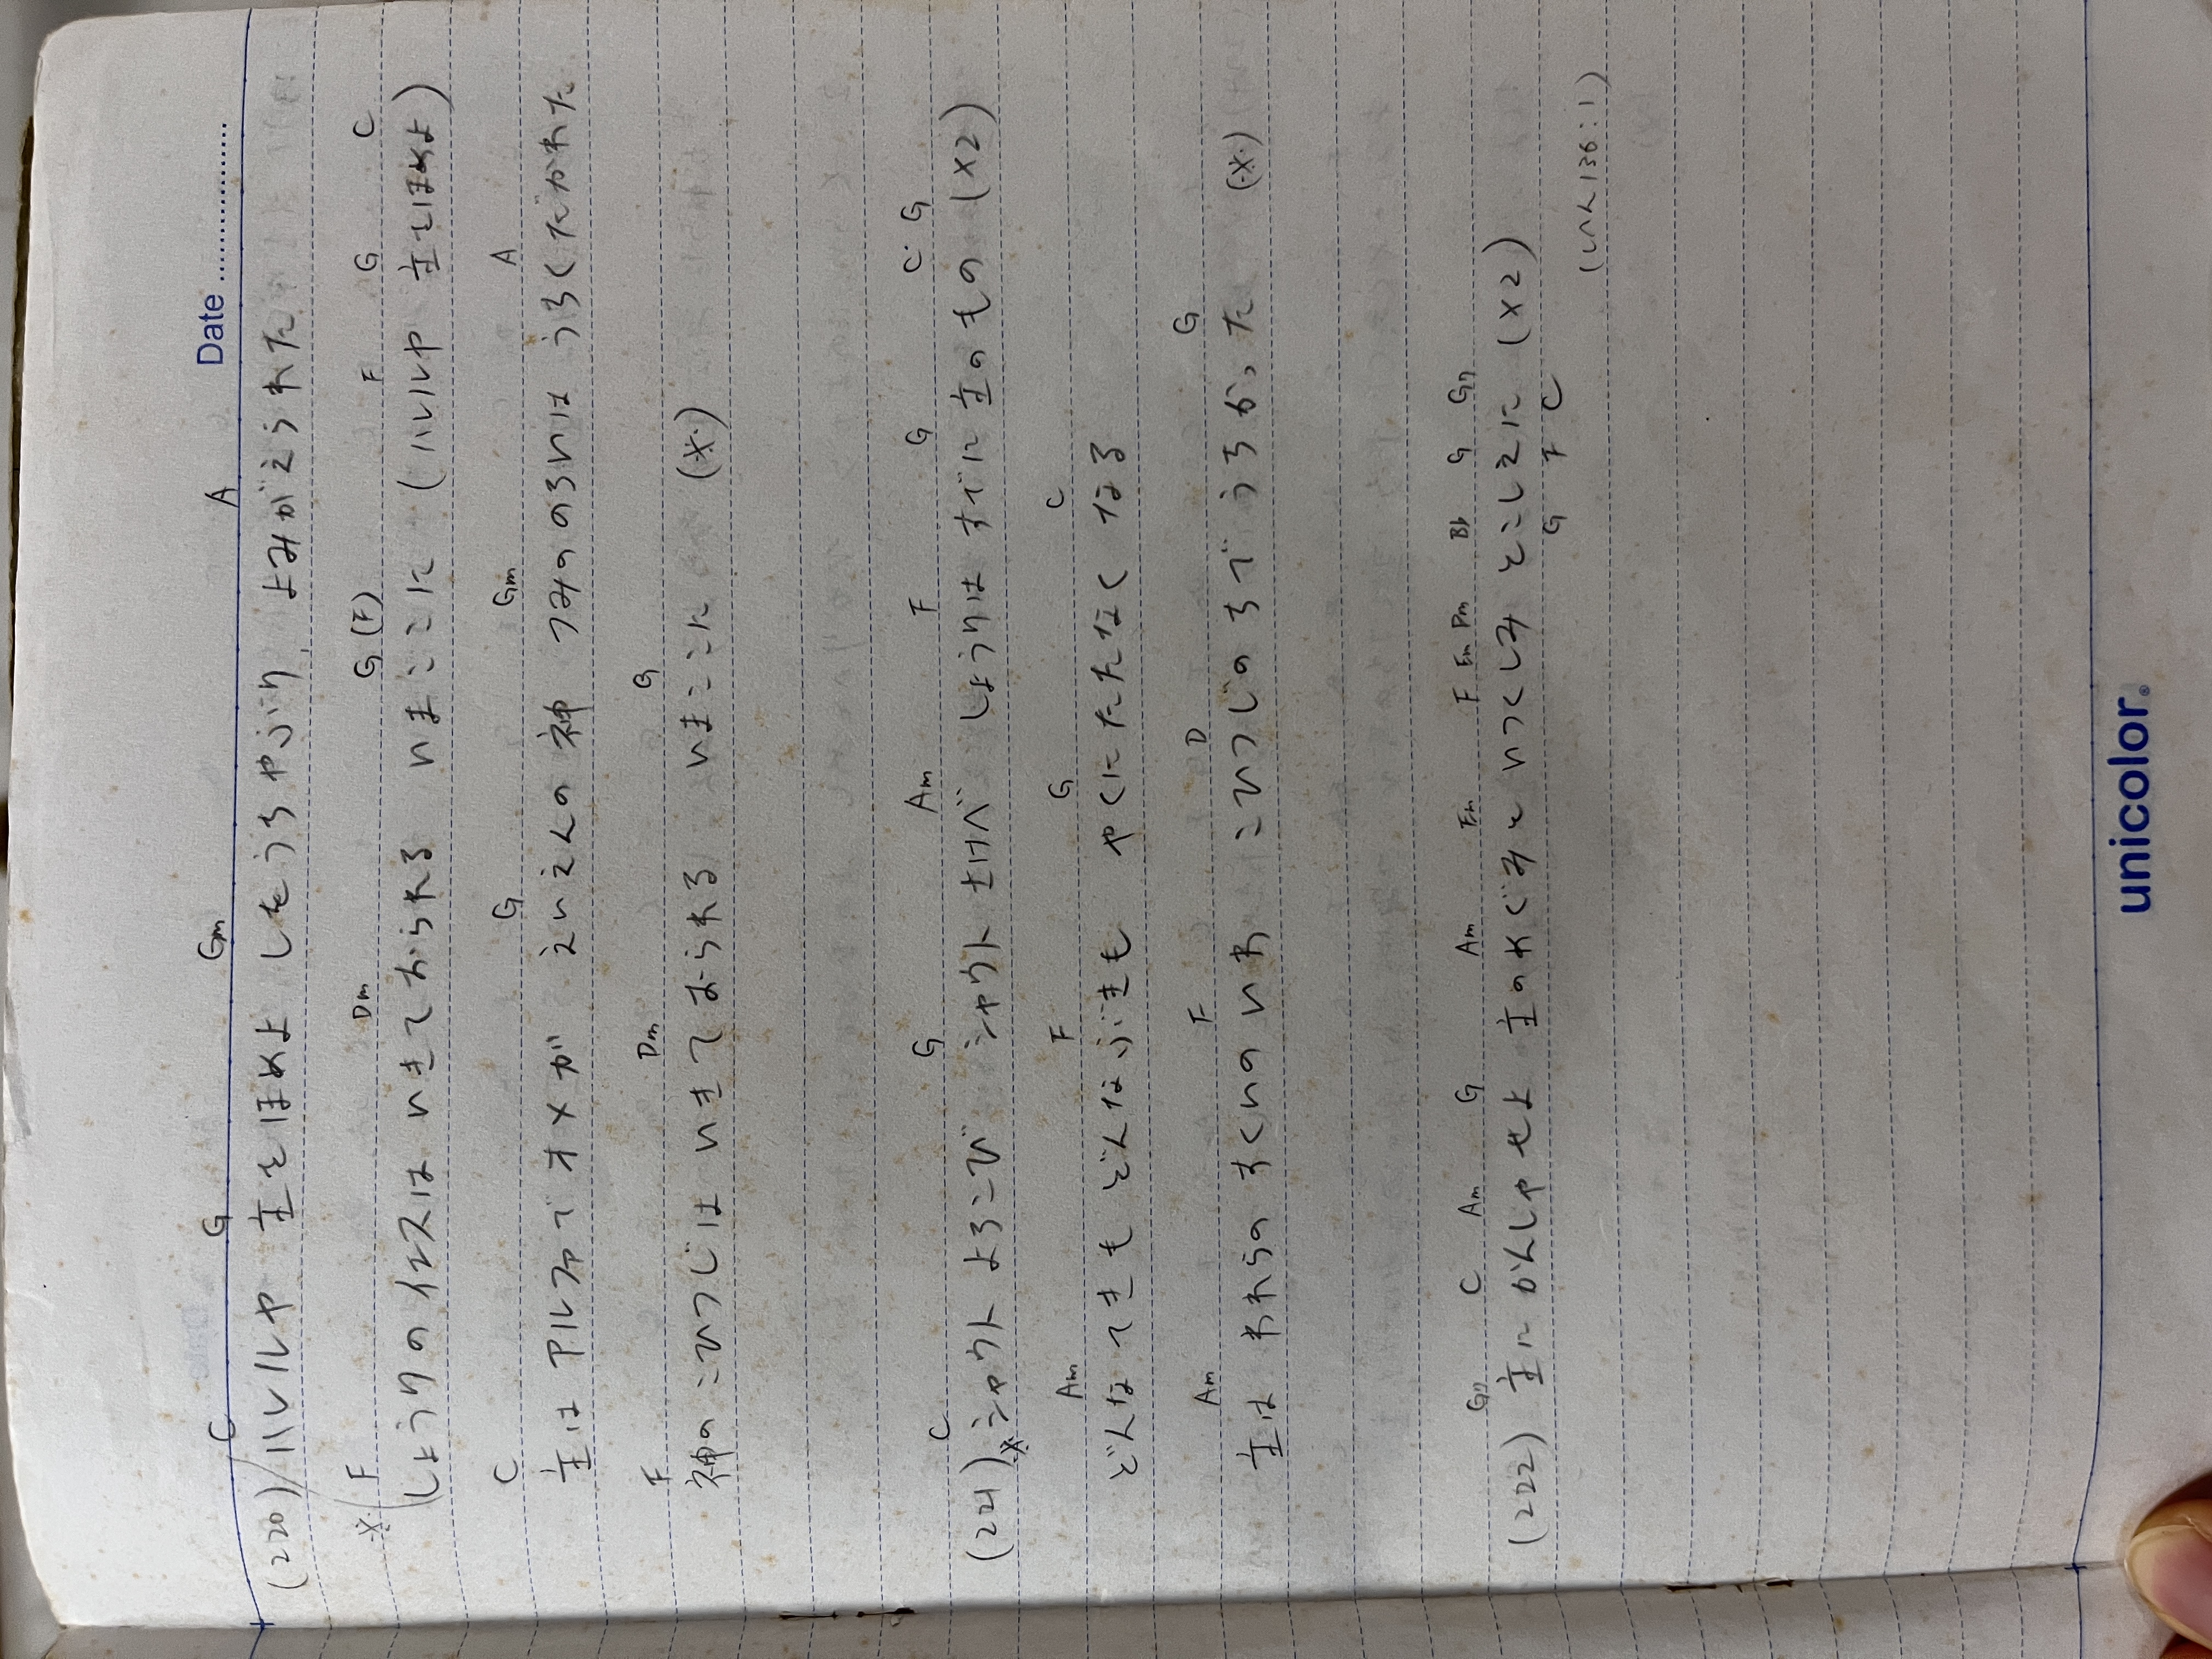 Date
C G Gm A
(220) ハレルヤ 主をほめよ しをうちやぶり よみがえられた
※ F Dm G (F) F G C
しょうりのイエスは いきておられる いまここに (ハレルヤ 主をほめよ)
C G Gm A
主は アルファで オメガ えいえんの神 つみののろいは うちくだかれた
F Dm G
神の こひつじは いきておられる いまここに (※)
C G Am F G C G
(221) ※ シャウト よろこび シャウト さけべ しょうりは すでに 主のもの (×2)
Am F G C
どんなてきも どんなぶきも やくにたたなく なる
Am F D G
主は われらの すくいの いわ こひつじの ちで うちかった (※)
G7 C Am G Am Em F Em Dm B♭ G G7
(222) 主に かんしゃせよ 主の めぐみと いつくしみ とこしえに (×2)
G F C
(しへん136:1)
unicolor.